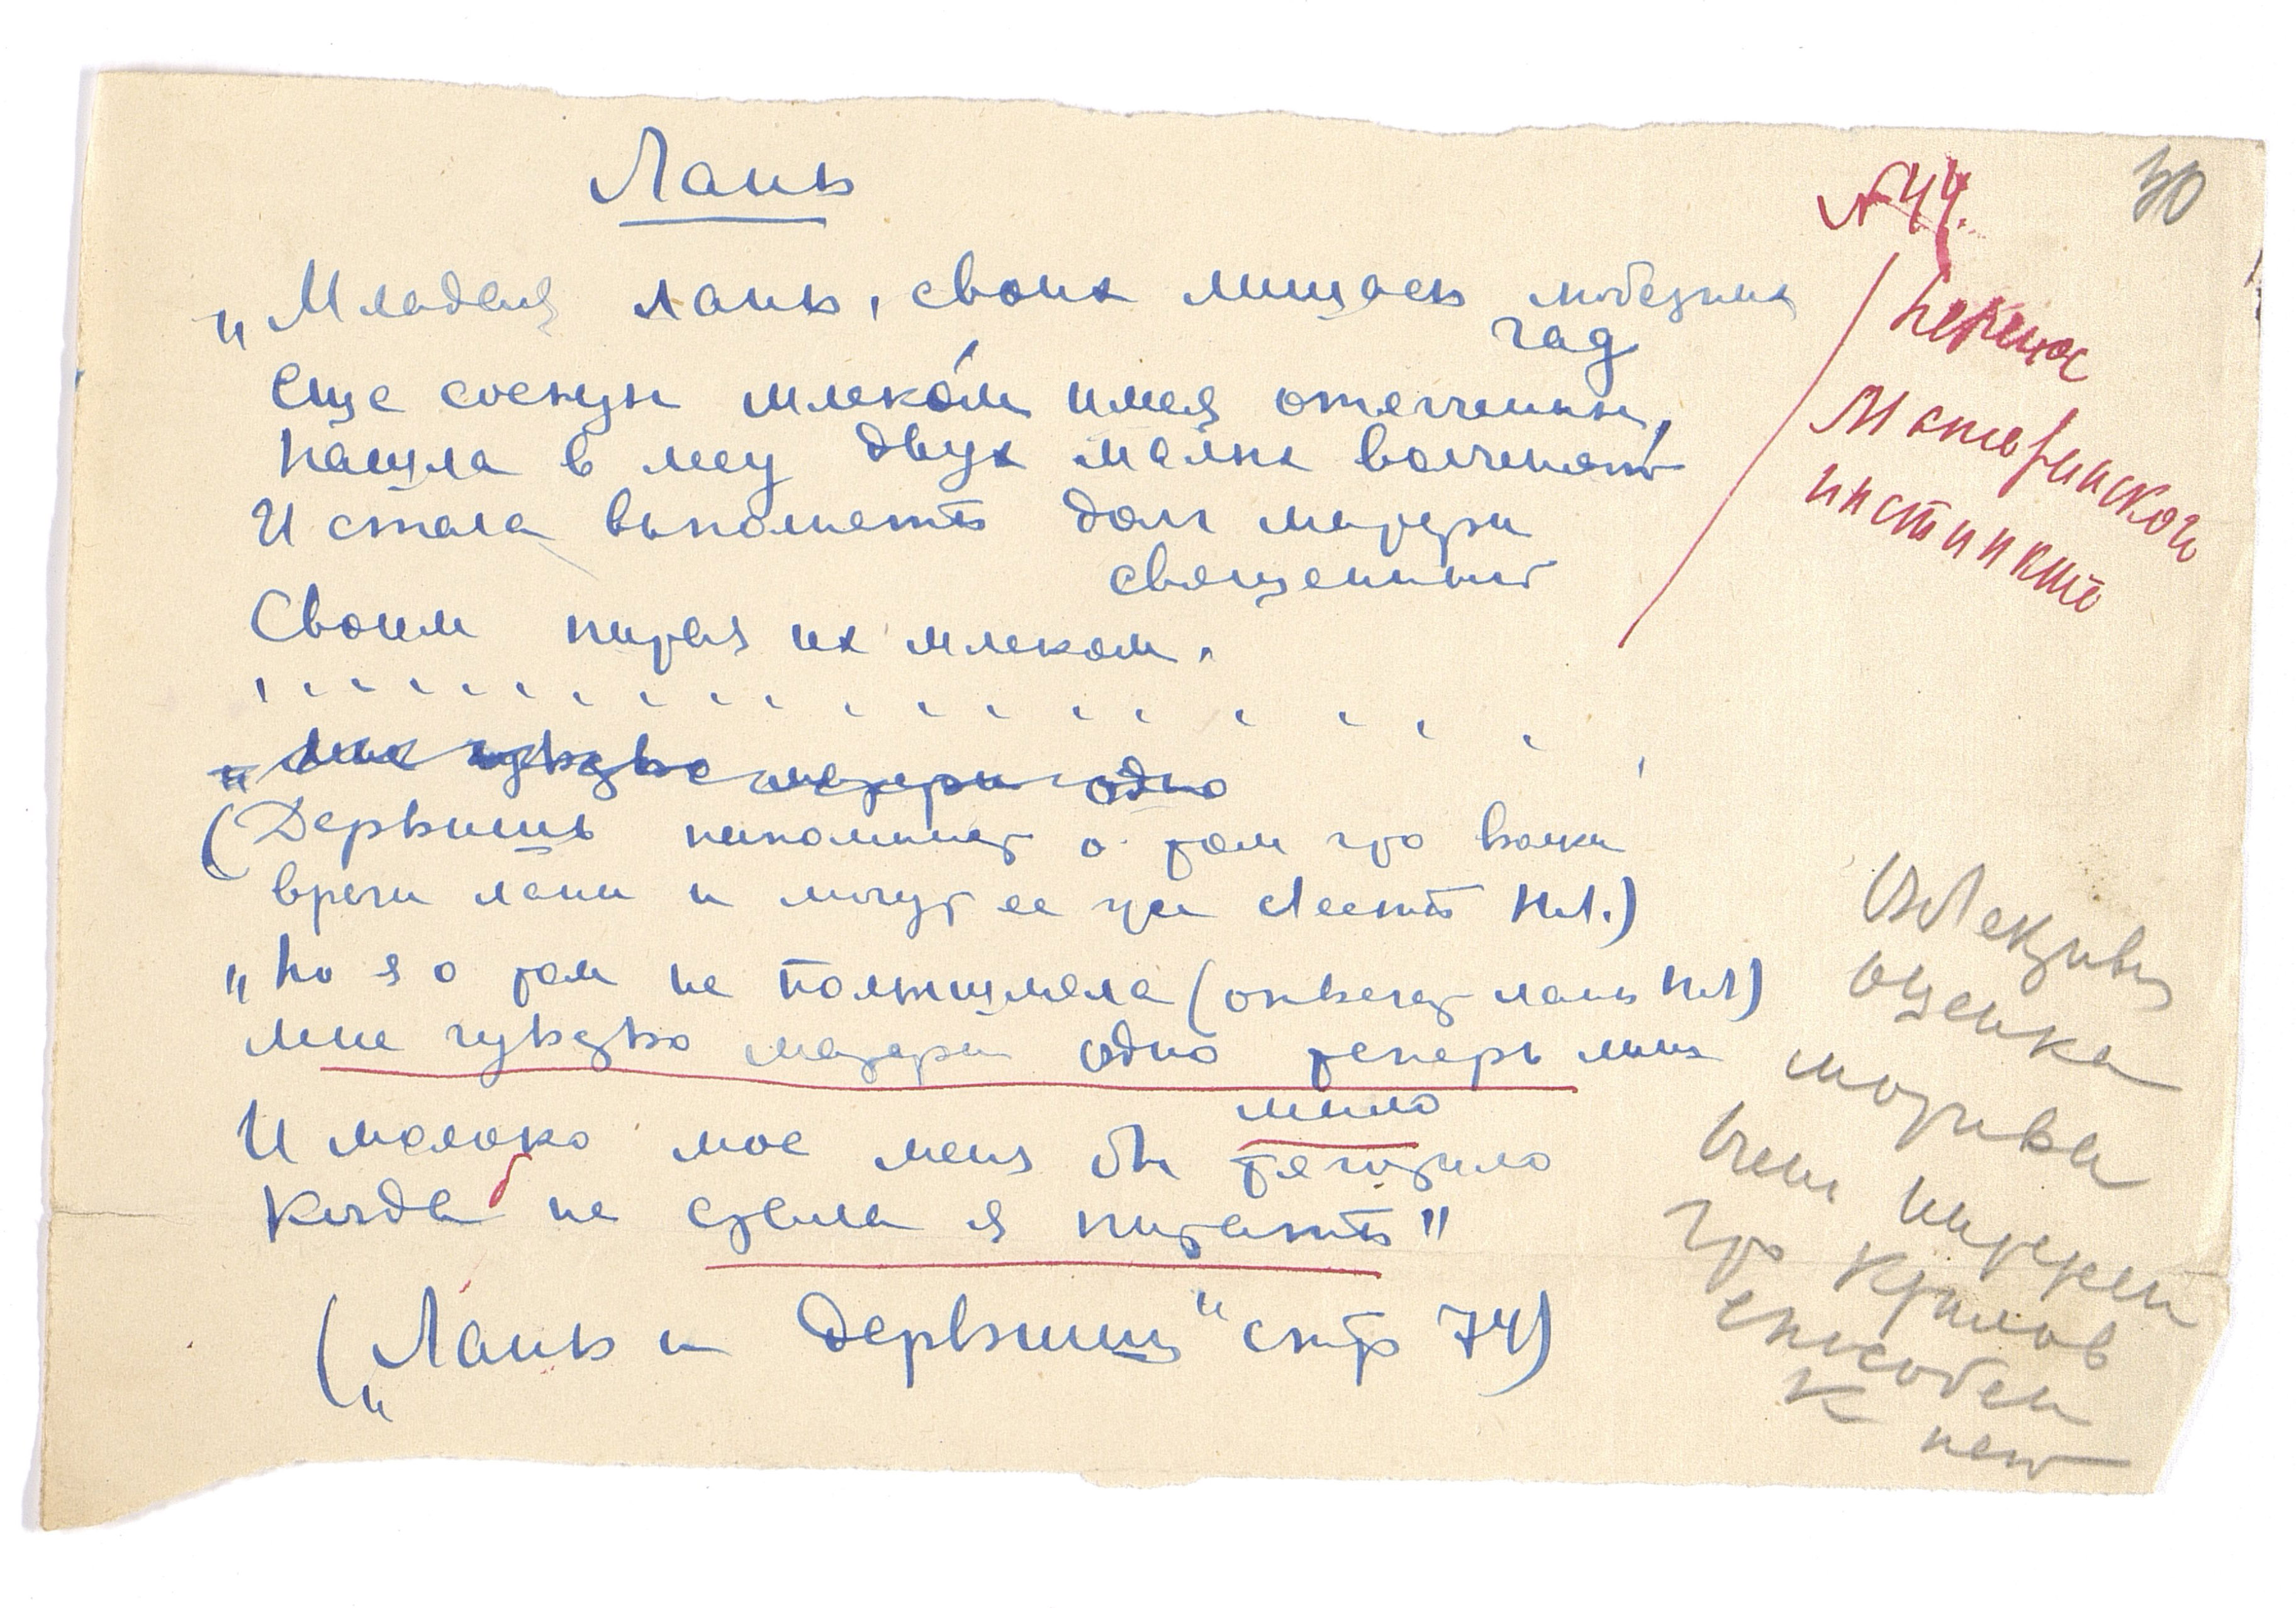 Лань
№ 44.
30
„Младая лань, своих лишась любезных
чад
Перенос
Еще сосцы млеко́м имея отягченны,
Материнского
Нашла в лесу двух малых волченят
инстинкта
И стала выполнять долг матери
священный
Своим питая их млеком.
„Мне чувство матери одно
(Дервиш напомнил о том что волки
враги лани и могут ее же съесть НЛ.)
„Но я о том не помышляла (отвечает лань НЛ)
Мне чувство матери одно теперь лишь
мило
И молоко мое меня бы тяготило
Когда б не стала я питать"
(„Лань и Дервиш" стр 74)
Объективн
оценка
мотива
Очень интерес
что Крылов
способен
к ней